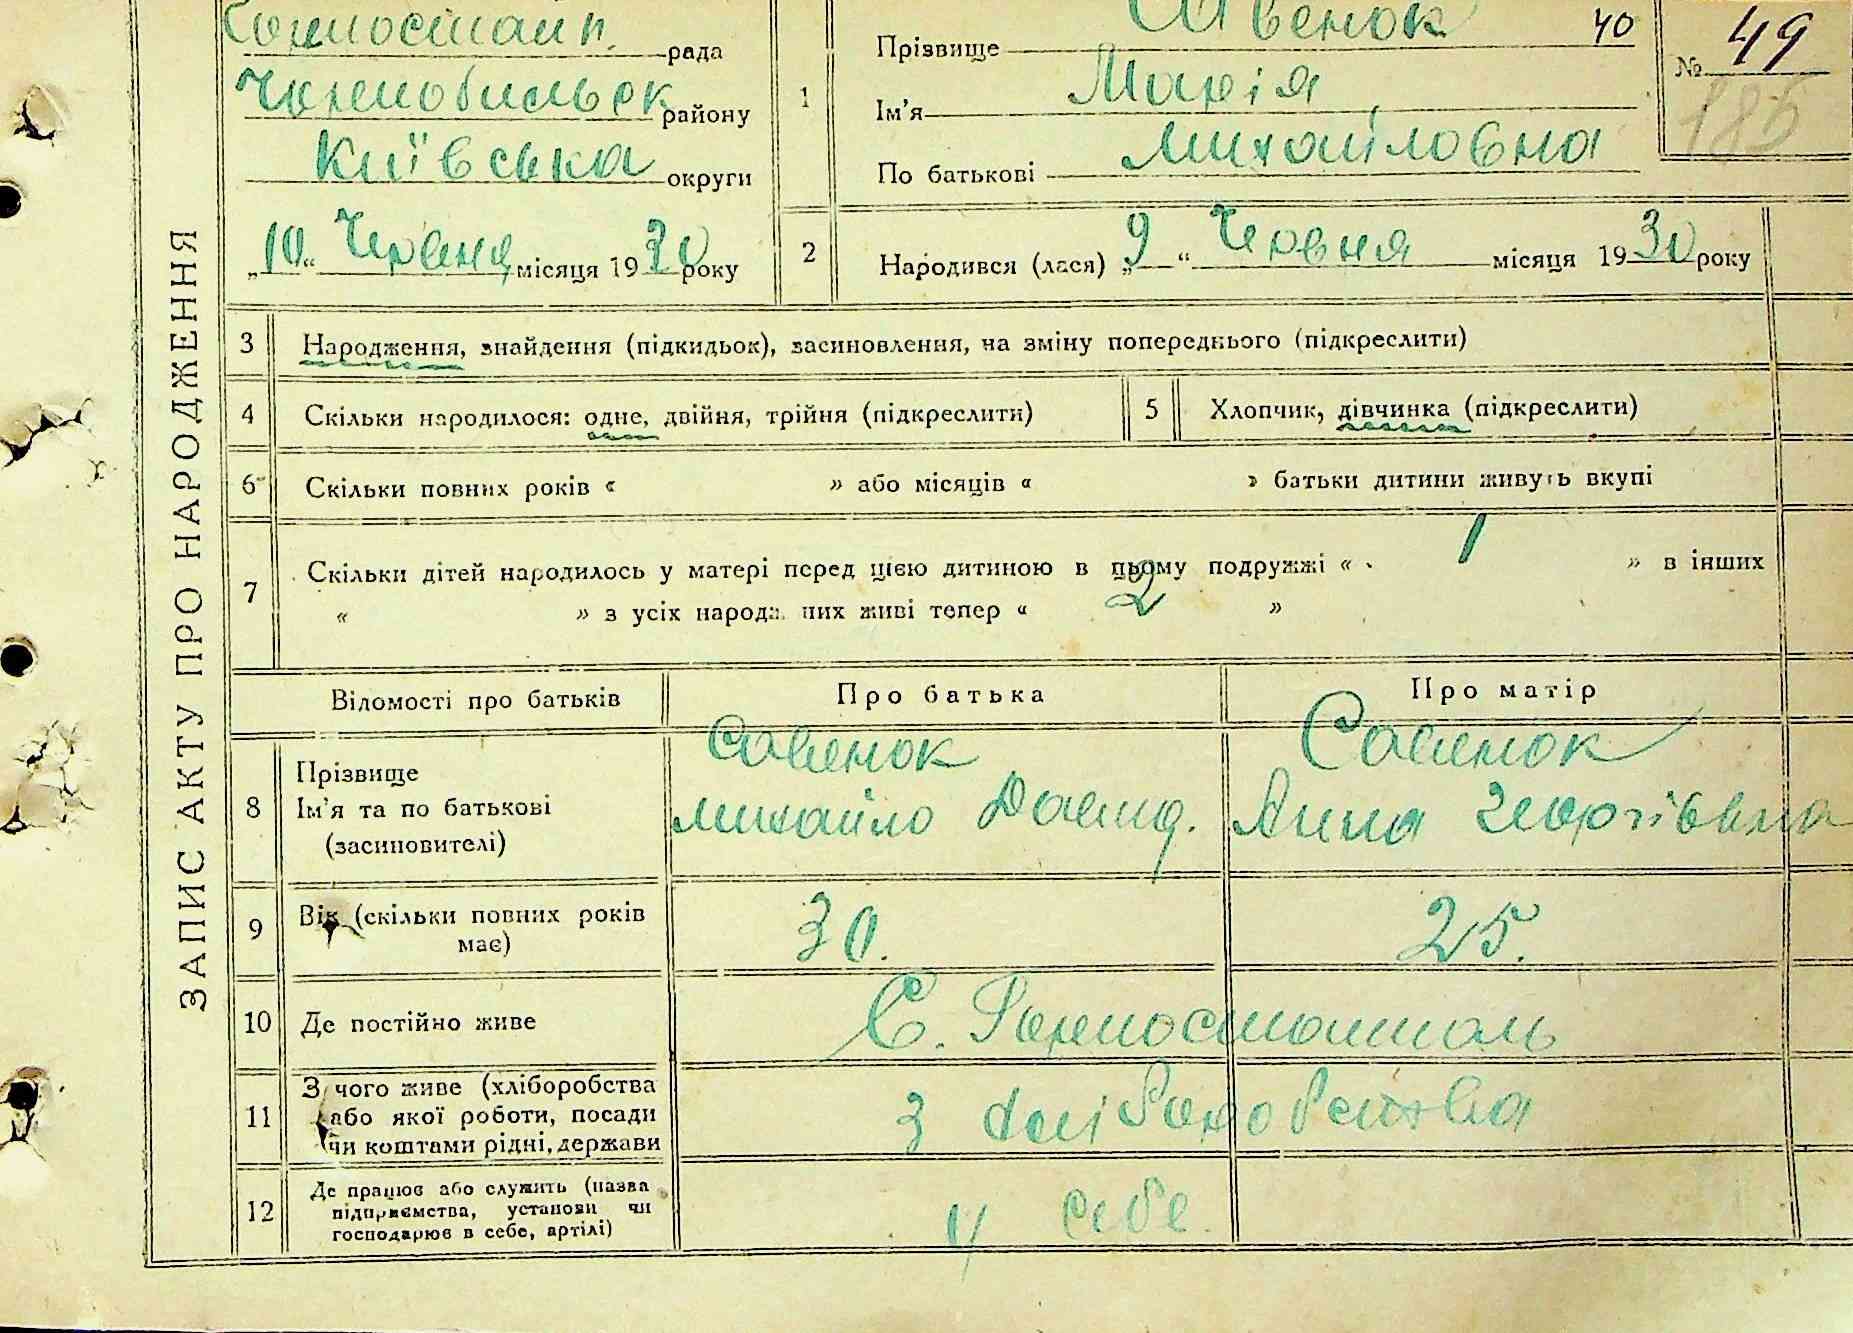 ЗАПИС АКТУ ПРО НАРОДЖЕННЯ
рада
Чорнобильськ району
Київська округи
„10“ Червня місяця 1930 року
1
Прізвище Савенок 40
Ім'я Марія
По батькові Михайловна
№ 49
185
2 Народився (лася) „9“ Червня місяця 1930 року
3 Народження, знайдення (підкидьок), засиновлення, на зміну попереднього (підкреслити)
4 Скільки народилося: одне, двійня, трійня (підкреслити)
5 Хлопчик, дівчинка (підкреслити)
6 Скільки повних років « » або місяців « » батьки дитини живуть вкупі
7 Скільки дітей народилось у матері перед цією дитиною в цьому подружжі « 1 » в інших
« » з усіх народж них живі тепер « 2 »
Відомості про батьків Про батька Про матір
8 Прізвище Савенок Савенок
Ім'я та по батькові Михайло Давид. Анна Георгівна
(засиновителі)
9 Вік (скільки повних років має) 30. 25.
10 Де постійно живе С. Горностайполь
11 З чого живе (хліборобства
або якої роботи, посади
чи коштами рідні, держави
З хліборобства
12 Де працює або служить (назва
підприємства, установи чи
господарює в себе, артілі)
У себе